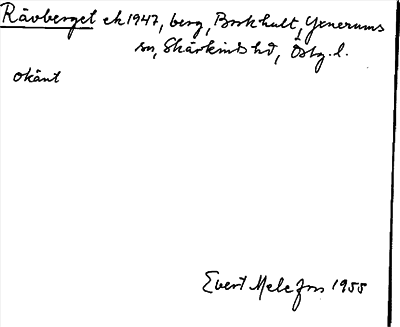 Rävberget ek 1947, berg, Borkhult, Yxnerums
sn, Skärkinds hd, Östg. l.
okänt
Evert Melefors 1955